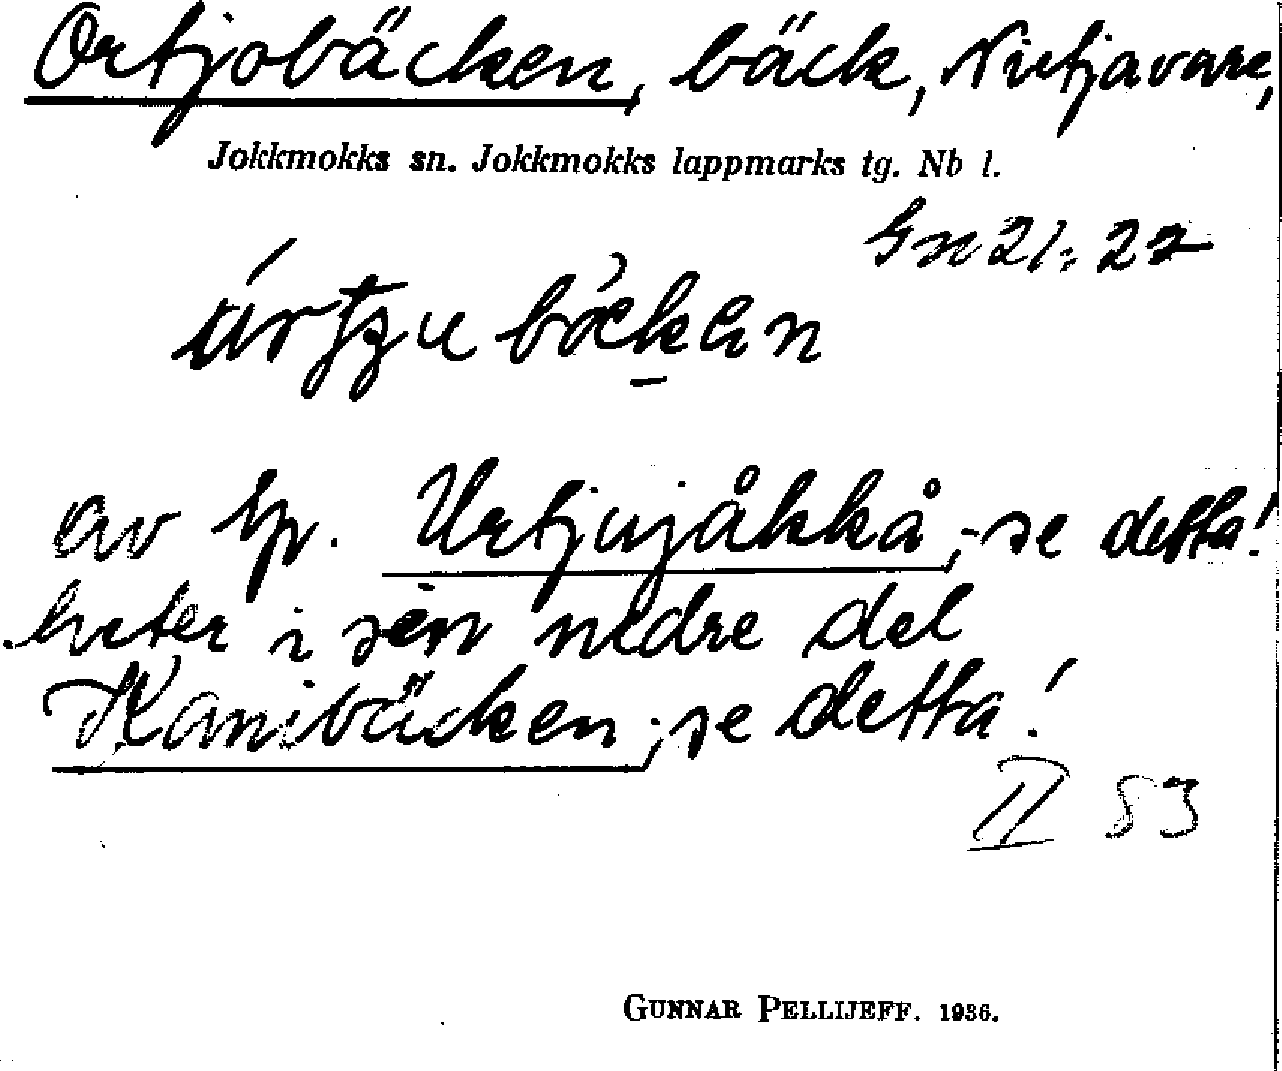 Ortjobäcken, bäck, Nietjavare,
Jokkmokks sn. Jokkmokks lappmarks tg. Nb l.
Gn 21: 22
av lp. Urtjujåkkå; se detta!
heter i sin nedre del
Kanibäcken; se detta!
II 83
GUNNAR PELLIJEFF. 1936.